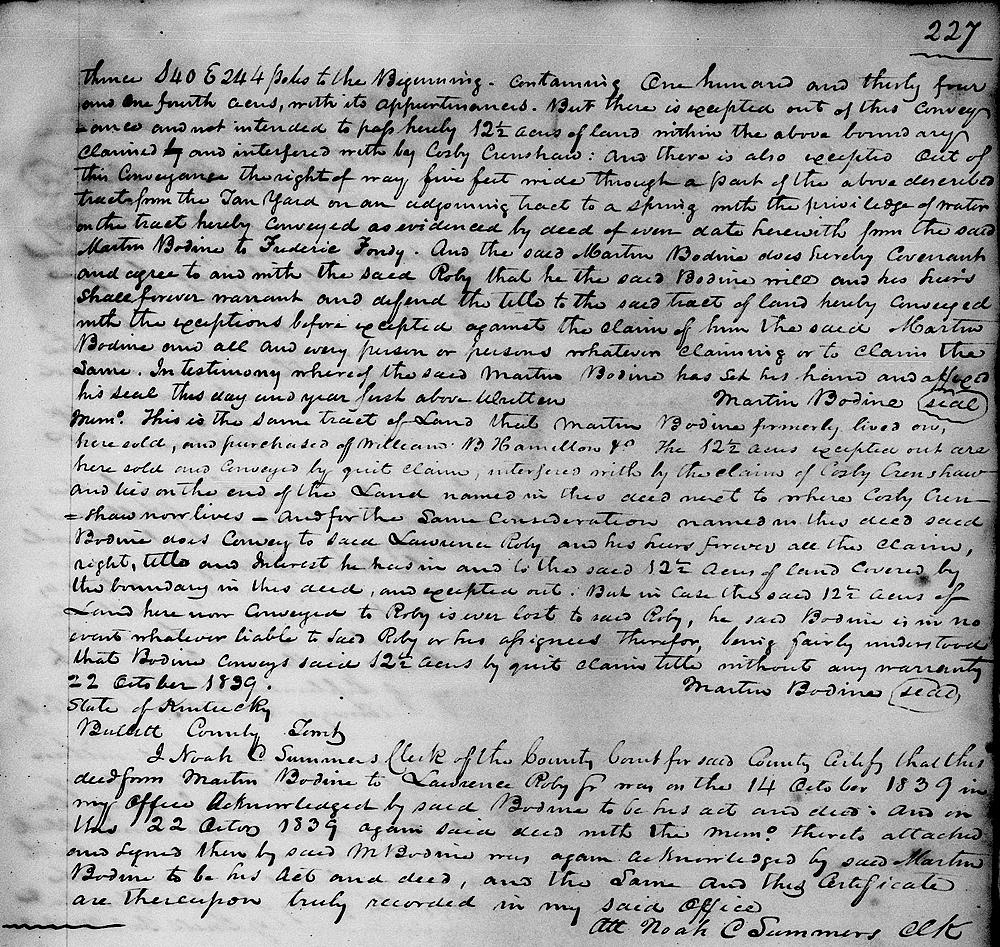 227
thence S40 E 244 poles to the Beginning. Containing One hundred and thirty four
and one fourth acres, with its appurtenances. But there is excepted out of this Convey
=ance and not intended to pass hereby 12½ acres of land within the above boundary
Claimed by and interfered with by Cosby Crenshaw: and there is also excepted Out of
this Conveyance the right of way five feet wide through a part of the above described
tract from the Tan Yard on an adjoining tract to a spring with the priviledge of water
on the tract hereby Conveyed as evidenced by deed of even date herewith from the said
Martin Bodine to Frederic Fondy. And the said Martin Bodine does hereby Covenant
and agree to and with the said Roby that he the said Bodine will and his heirs
Shall forever warrant and defend the title to the said tract of land hereby Conveyed
with the exceptions before excepted against the claim of him the said Martin
Bodine and all and every person or persons whatever claiming or to claim the
Same. In testimony whereof the said Martin Bodine has Set his hand and affixed
his seal this day and year first above Written Martin Bodine (seal)
Memo. This is the same tract of Land that Martin Bodine formerly lived on,
here sold, and purchased of William B Hamilton &c The 12½ acres excepted out are
here sold and Conveyed by quit claim, interfered with by the claim of Cosby Crenshaw
and lies on the end of the Land named in this deed next to where Cosby Cren-
=shaw now lives - And for the Same Consideration named in this deed said
Bodine does Convey to said Lawrence Roby and his heirs forever all the Claim,
right, title and Interest he has in and to the said 12½ Acres of land Covered by
the boundary in this deed, and excepted out: But in Case the said 12½ acres of
Land here now Conveyed to Roby is ever lost to said Roby, he said Bodine is in no
event whatever liable to said Roby or his assignees therefor, being fairly understood
that Bodine Conveys said 12½ acres by quit claim title without any warranty
22 October 1839. Martin Bodine (seal)
State of Kentucky
Bullitt County Sct
I Noah C Summers Clerk of the County Court for said County Certify that this
deed from Martin Bodine to Lawrence Roby Jr was on the 14 October 1839 in
my Office Acknowledged by said Bodine to be his act and deed: And on
this 22 Octor 1839 again said deed with the memo. thereto attached
and signed then by said M Bodine was again acknowledged by said Martin
Bodine to be his Act and deed, and the Same and this Certificate
are thereupon truly recorded in my said Office
Att Noah C Summers Clk